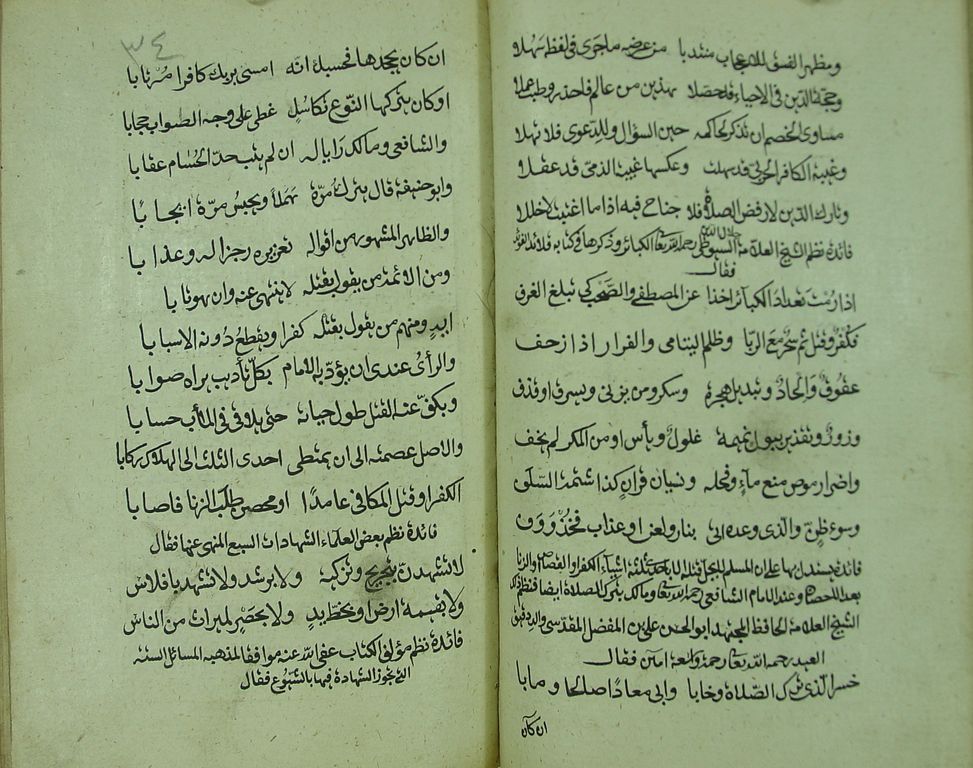 ومظهر الفسق للاعجاب منتدبا من عرضه ماجرى في لفظ سهلا
وحجة الدين في الاحياء قد حصلا بهذين من عالم فاحذر وطب عملا
مساوى الخصم ان تذكر لحاكمه حين السؤال وللدعوى فلا تهلا
وغيبة الكافر الحربي قد سهلت وعكسها غيبة الذمى قد عقلا
وتارك الدين لا رفض الصلاة فلا جناح فيه اذا ما اغتيب لاخللا
فائدة نظم الشيخ العلامة جلال الدين السيوطى رحمه الله تعالى الكبائر وذكرها في كتابه قلائد الفوائد
فقال
اذا رمت تعداد الكبائر اخذا عن المصطفى والصحب كي تبلغ الغرف
فكفر وقتل ثم سحر مع الربا وظلم اليتامى والفرار اذا زحف
عقوق والحاد وتبديل هجرة وسكر ومن يزني ويسرق او قذف
وزور وتقذير ببول نميمة غلول ويأس او من المكر لم يخف
واضرار موص منع ماء وفحله ونسيان قران كذا شتمه السلف
وسوء ظن والذي وعده اتى بنار ولعن او عذاب فخذ ووف
فائدة يستدل بها على ان المسلم لا يحل قتله الا باحد ثلاثة اشياء الكفر او القصاص والزنا
بعد الاحصان وعند الامام الشافعي رحمه الله تعالى ومالك بترك الصلاة ايضا فنظم ذلك
الشيخ العلامة الحافظ المجتهد ابو الحسن على بن المفضل المقدسي والد دقيق
العيد رحمه الله تعالى رحمة واسعة امين فقال
خسر الذي ترك الصلاة وخابا وابى معادا صالحا ومابا
ان كان
٣٤
ان كان يجحدها فحسبك انه امسى بربك كافرا مرتابا
او كان يتركها لنوع تكاسل غطى على وجه الصواب حجابا
والشافعي ومالك رايا له ان لم يتب حد الحسام عقابا
وابو حنيفة قال يترك مرة هملا ويحبس مرة ايجابا
والظاهر المشهور من اقواله تعزيره زجرا له وعذابا
ومن الائمة من يقول بقتله لا ينتهى عنه وان هو تابا
ابد ومنهم من يقول بقتله كفرا ويقطع دونه الاسبابا
والرأى عندى ان يؤدبه الامام بكل تأديب يراه صوابا
ويكف عنه القتل طول حياته حتى يلاقى في المآب حسابا
والاصل عصمته الى ان يمتطى احدى الثلاث الى الهلاك ركابا
الكفر او قتل المكافى عامدا او محصن طلب الزنا فاصابا
فائدة نظم بعض العلماء الشهادات السبع المنهى عنها فقال
لا تشهدن بتجريح وتزكية ولا برشد ولا تشهد بافلاس
ولا بقسمة ارض او بخط يد ولا بحصر لميراث من الناس
فائدة نظم مؤلف الكتاب عفى الله عنه موافقا لمذهبه المسائل الستة
التي تجوز الشهادة فيها بالشيوع فقال